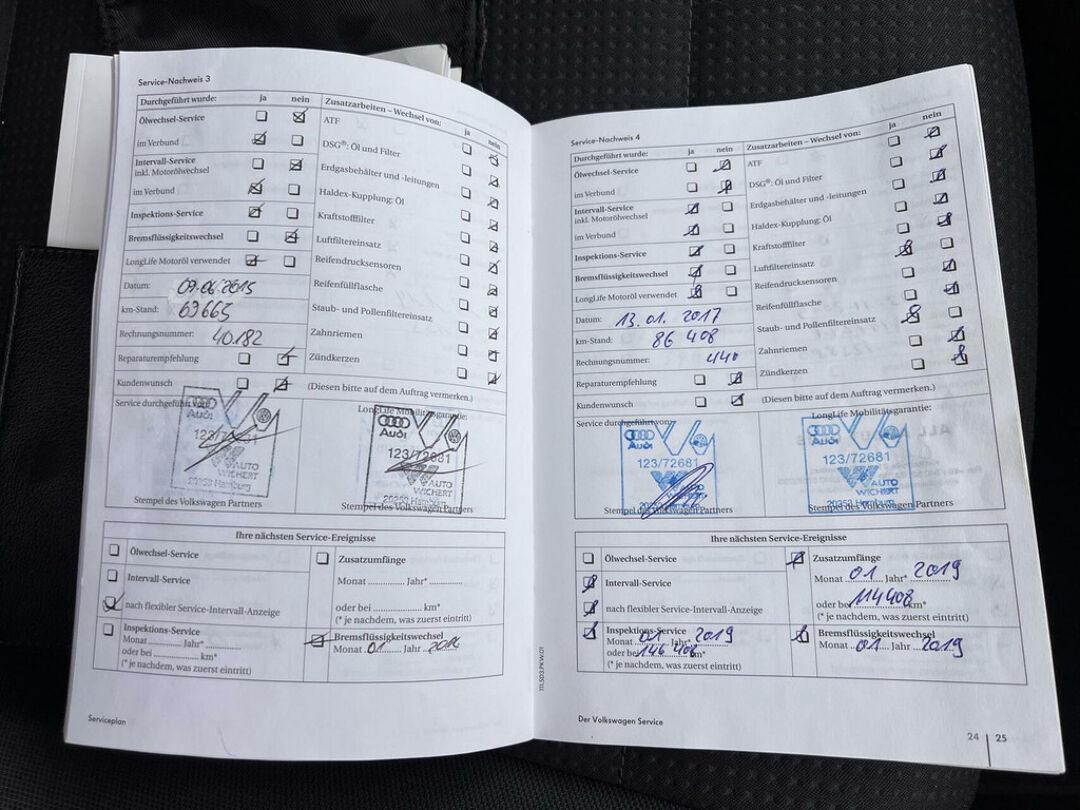 Service-Nachweis 3
Durchgeführt wurde: ja nein
Ölwechsel-Service
im Verbund
Intervall-Service
inkl. Motorölwechsel
im Verbund
Inspektions-Service
Bremsflüssigkeitswechsel
LongLife Motoröl verwendet
Datum: 09.06.2015
km-Stand: 63665
Rechnungsnummer: 40.182
Reparaturempfehlung
Kundenwunsch
Zusatzarbeiten – Wechsel von: ja nein
ATF
DSG®: Öl und Filter
Erdgasbehälter und -leitungen
Haldex-Kupplung: Öl
Kraftstofffilter
Luftfiltereinsatz
Reifendrucksensoren
Reifenfüllflasche
Staub- und Pollenfiltereinsatz
Zahnriemen
Zündkerzen
(Diesen bitte auf dem Auftrag vermerken.)
Service durchgeführt von:
Audi
AUTO
WICHERT
Hamburg
Stempel des Volkswagen Partners
LongLife Mobilitätsgarantie:
Audi
123/72681
AUTO
WICHERT
Hamburg
Stempel des Volkswagen Partners
Ihre nächsten Service-Ereignisse
Ölwechsel-Service
Intervall-Service
nach flexibler Service-Intervall-Anzeige
Inspektions-Service
Monat ........... Jahr* ...........
oder bei ............... km*
(* je nachdem, was zuerst eintritt)
Zusatzumfänge
Monat ............ Jahr* ............
oder bei ................ km*
(* je nachdem, was zuerst eintritt)
Bremsflüssigkeitswechsel
Monat 01 Jahr
Serviceplan
Service-Nachweis 4
Durchgeführt wurde: ja nein
Ölwechsel-Service
im Verbund
Intervall-Service
inkl. Motorölwechsel
im Verbund
Inspektions-Service
Bremsflüssigkeitswechsel
LongLife Motoröl verwendet
Datum: 13.01.2017
km-Stand: 86 408
Rechnungsnummer:
Reparaturempfehlung
Kundenwunsch
Zusatzarbeiten – Wechsel von: ja nein
ATF
DSG®: Öl und Filter
Erdgasbehälter und -leitungen
Haldex-Kupplung: Öl
Kraftstofffilter
Luftfiltereinsatz
Reifendrucksensoren
Reifenfüllflasche
Staub- und Pollenfiltereinsatz
Zahnriemen
Zündkerzen
(Diesen bitte auf dem Auftrag vermerken.)
Service durchgeführt von:
Audi
123/72681
AUTO
WICHERT
Stempel des Volkswagen Partners
LongLife Mobilitätsgarantie:
Audi
123/72681
AUTO
WICHERT
Hamburg
Stempel des Volkswagen Partners
Ihre nächsten Service-Ereignisse
Ölwechsel-Service
Intervall-Service
nach flexibler Service-Intervall-Anzeige
Inspektions-Service
Monat 01 Jahr* 2019
oder bei 146 408 km*
(* je nachdem, was zuerst eintritt)
Zusatzumfänge
Monat 01 Jahr* 2019
oder bei 114408 km*
(* je nachdem, was zuerst eintritt)
Bremsflüssigkeitswechsel
Monat 01 Jahr 2019
Der Volkswagen Service
24 | 25